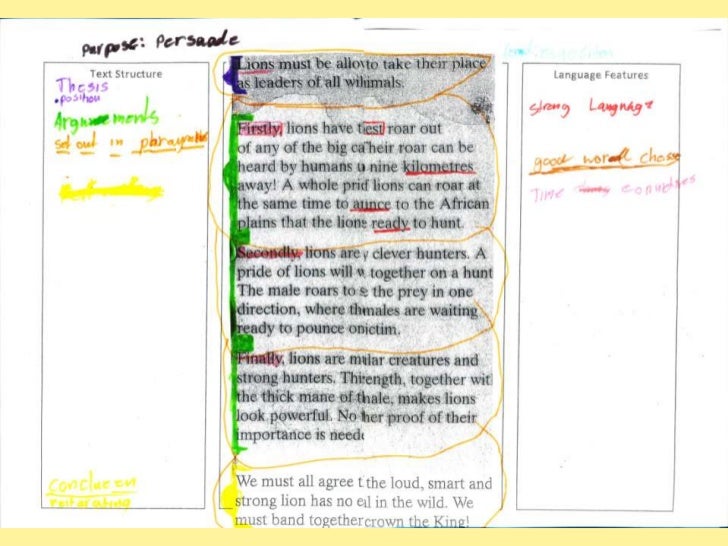 purpose: Persuade
Text Structure
Thesis
• position
Arguements
set out in paragraphs
Conclueen
restateting
Lions must be allovto take their place
as leaders of all wilnimals.
Firstly, lions have test roar out
of any of the big catheir roar can be
heard by humans u nine kilometres
away! A whole prid lions can roar at
the same time to aunce to the African
plains that the lions ready to hunt.
Secondly, lions are y clever hunters. A
pride of lions will w together on a hunt
The male roars to s the prey in one
direction, where thmales are waiting
ready to pounce onictim.
Finally, lions are mular creatures and
strong hunters. Thirength, together wit
the thick mane of thale, makes lions
look powerful. No her proof of their
importance is need
We must all agree t the loud, smart and
strong lion has no el in the wild. We
must band together crown the King!
Language Features
strong Langnage
good word choose
Time